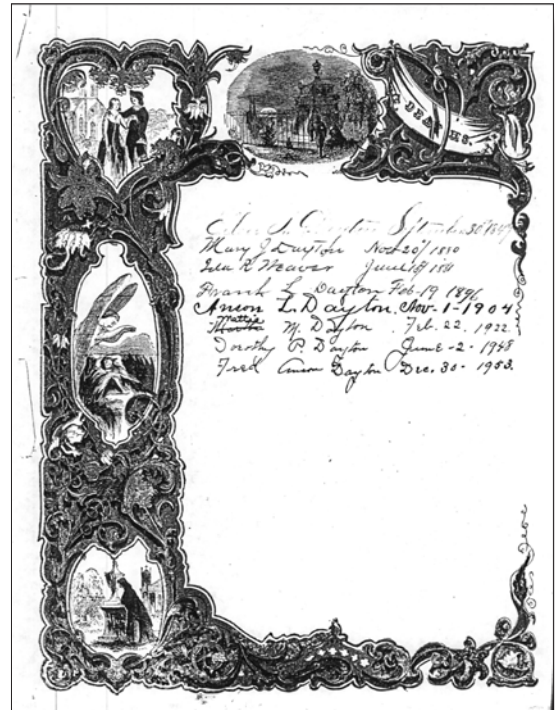 DEATHS.
Dayton September 30 1847
Mary J Dayton Nov 20th 1880
R Weaver June 18th 1881
Frank L. Dayton Feb-19 1896
Anson L. Dayton, Nov-1-1904
Mattie
Martha M. Dayton Feb. 22, 1922
Dorothy P. Dayton June-2-1948
Fred Anson Dayton Dec. 30-1953.